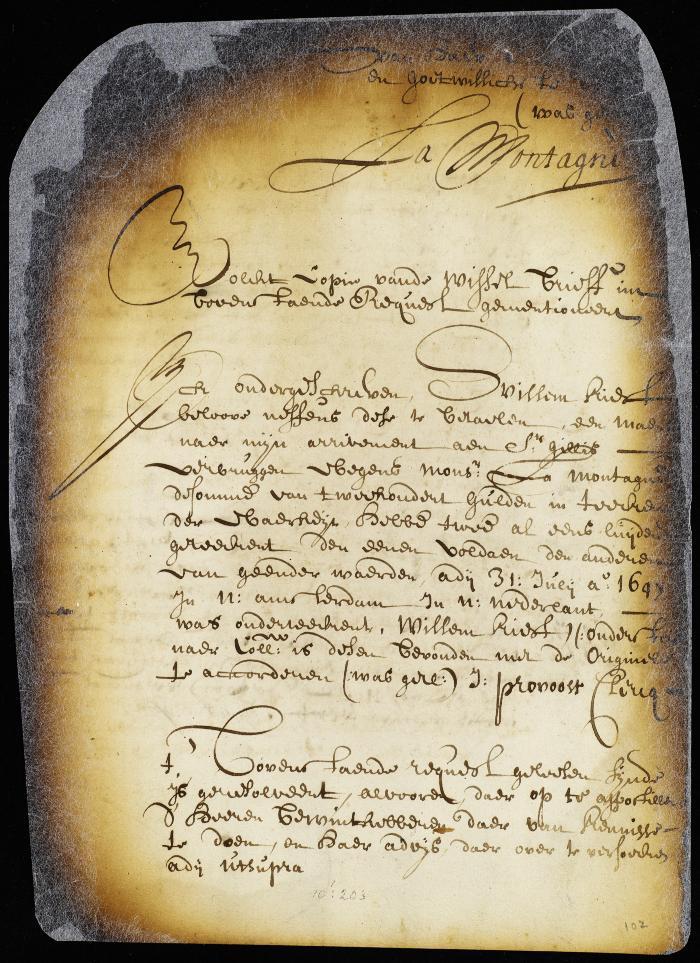 van haer
en goetwillich te
(was ge
La Montagne
Volcht Copie vande Wissel brieff in
bovenstaende Request gementioneert
Ick ondergeschreven, Willem Kieft
beloove neffens dese te betaelen, een mae
naer mijn arrivement aen Sr. Gillis
Verbruggen Wegens Monsr. La Montagne
de somme van tweehondert Gulden in teecke
der Waerheyt hebbe twee al eens luijden
geteekent den eenen voldaen den anderen
van geender waerden, adij 31: July ao. 164
In N: Amsterdam In N: Nederlant,
was onderteekent, Willem Kieft /(: onder
naer Coll: is desen bevonden met de Origine
te accorderen (was get:) J: Provoost Clercq
't Bovenstaende request gelesen sijnde
is geresolveert, alvooren, daer op te appostilleren
d'Heeren bewinthebberen daer van kennisse
te doen, en haer advys, daer over te versoecken
adij utsupra
102